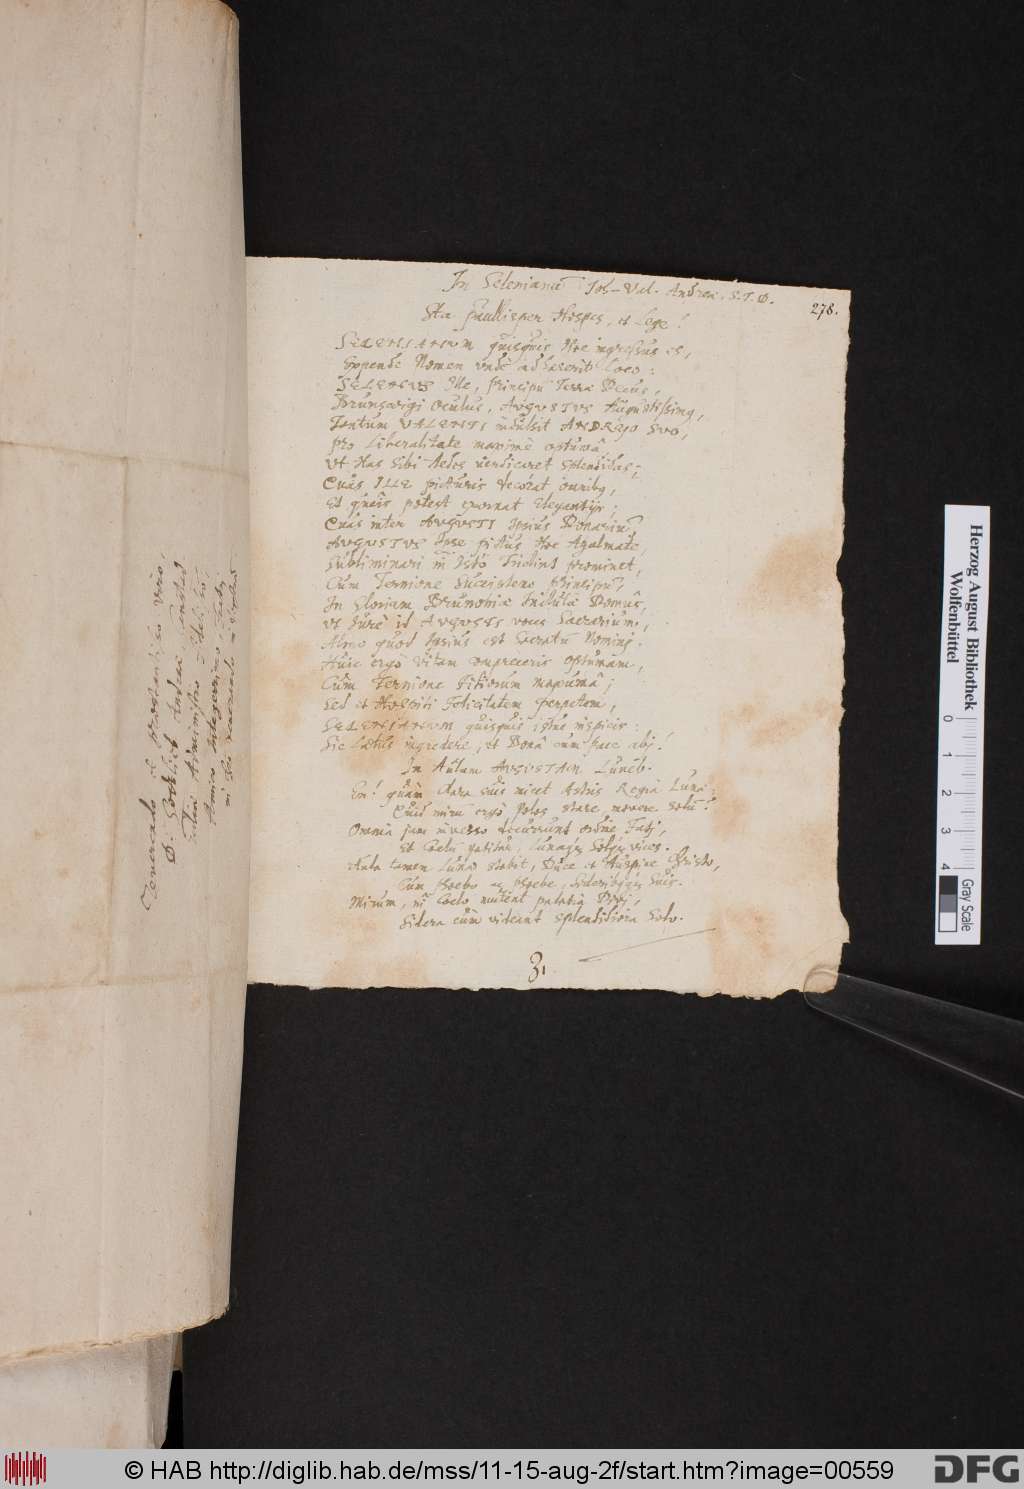 In Selenianū Joh-Val. Andreæ. S.T.D.
278.
Sta paullisper Hospes, et Lege!
SELENIANUM quisquis Hoc ingressus es,
Expende Nomen unde adhæserit Loco:
SELENUS Ille, Principum Terræ Decus,
Brunsvvigi Oculus, AUGUSTUS Augustissimq,
Tantum VALENTI indulsit ANDREÆO SUO,
Pro Liberalitate maxime optumâ
Ut Has Sibi Aedes vendicaret splendidas;
Quas ILLE picturis decorat
Et queis potest exornat Elegantijs;
Quas inter AUGUSTI Ipsius Donarium,
AUGUSTUS Ipse pictus Hoc Agalmate,
Subliminari in Isto prominet,
Cum Ternione Principum,
In Gloriam Brunonia Inclutæ Domus,
Ut Jure id AUGUSTI voces Sacrarium,
quod Ipsius est Sacratū Nominj.
Huic ergo Vitam compreceris optumam,
Cum Ternione Filiorum maxumâ;
Sed et Hospiti Felicitatem perpetem,
SELENIANUM quisquis istuc inspicis:
Sic Lætus ingredere, et Donâ cum pace abj!
In Aulam AUGUSTAM Luneb.
En! quàm clara suis micet Astris Regia Lunæ:
Quid mirū ergò Polos stare, movere Solū?
Omnia jam inverso decurrunt ordine Fatj,
Et Cœlū patitur, Lunaq; Solq; vices.
Aula tamen Lunæ stabit, Duce et Auspice Christo,
Cum Phoebo ac Phoebe, Sideribusq; Suis.
Mirum, ni Coelo mutent palatia Divj,
Sidera cùm videant splendidiora Solo.
31
Venerando et præstantissō viro,
D. Gottlieb Andreæ,
Amico integerrimo
Herzog August Bibliothek
Wolfenbüttel
0 1 2 3 4
Gray Scale
© HAB http://diglib.hab.de/mss/11-15-aug-2f/start.htm?image=00559
DFG